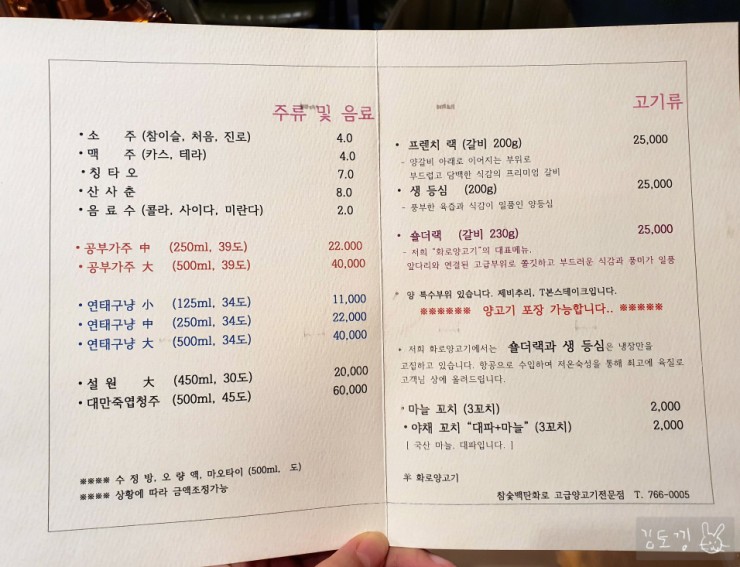 주류 및 음료
• 소 주 (참이슬, 처음, 진로) 4.0
• 맥 주 (카스, 테라) 4.0
• 칭 타 오 7.0
• 산 사 춘 8.0
• 음 료 수 (콜라, 사이다, 미란다) 2.0
• 공부가주 中 (250ml, 39도) 22.000
• 공부가주 大 (500ml, 39도) 40,000
• 연태구냥 小 (125ml, 34도) 11,000
• 연태구냥 中 (250ml, 34도) 22,000
• 연태구냥 大 (500ml, 34도) 40,000
• 설 원 大 (450ml, 30도) 20,000
• 대만죽엽청주 (500ml, 45도) 60,000
※※※※ 수 정 방, 오 량 액, 마오타이 (500ml, 도)
※※※※ 상황에 따라 금액조정가능
고기류
• 프렌치 랙 (갈비 200g) 25,000
- 양갈비 아래로 이어지는 부위로
부드럽고 담백한 식감의 프리미엄 갈비
• 생 등심 (200g) 25,000
- 풍부한 육즙과 식감이 일품인 양등심
• 숄더랙 (갈비 230g) 25,000
- 저희 "화로양고기"의 대표메뉴,
앞다리와 연결된 고급부위로 쫄깃하고 부드러운 식감과 풍미가 일품
* 양 특수부위 있습니다. 제비추리, T본스테이크입니다.
※※※※※※ 양고기 포장 가능합니다.. ※※※※※
• 저희 화로양고기에서는 숄더랙과 생 등심은 냉장만을
고집하고 있습니다. 항공으로 수입하여 저온숙성을 통해 최고에 육질로
고객님 상에 올려드립니다.
• 마늘 꼬치 (3꼬치) 2,000
• 야채 꼬치 "대파+마늘" (3꼬치) 2,000
[ 국산 마늘, 대파입니다. ]
羊 화로양고기
참숯백탄화로 고급양고기전문점 T. 766-0005
김도낑